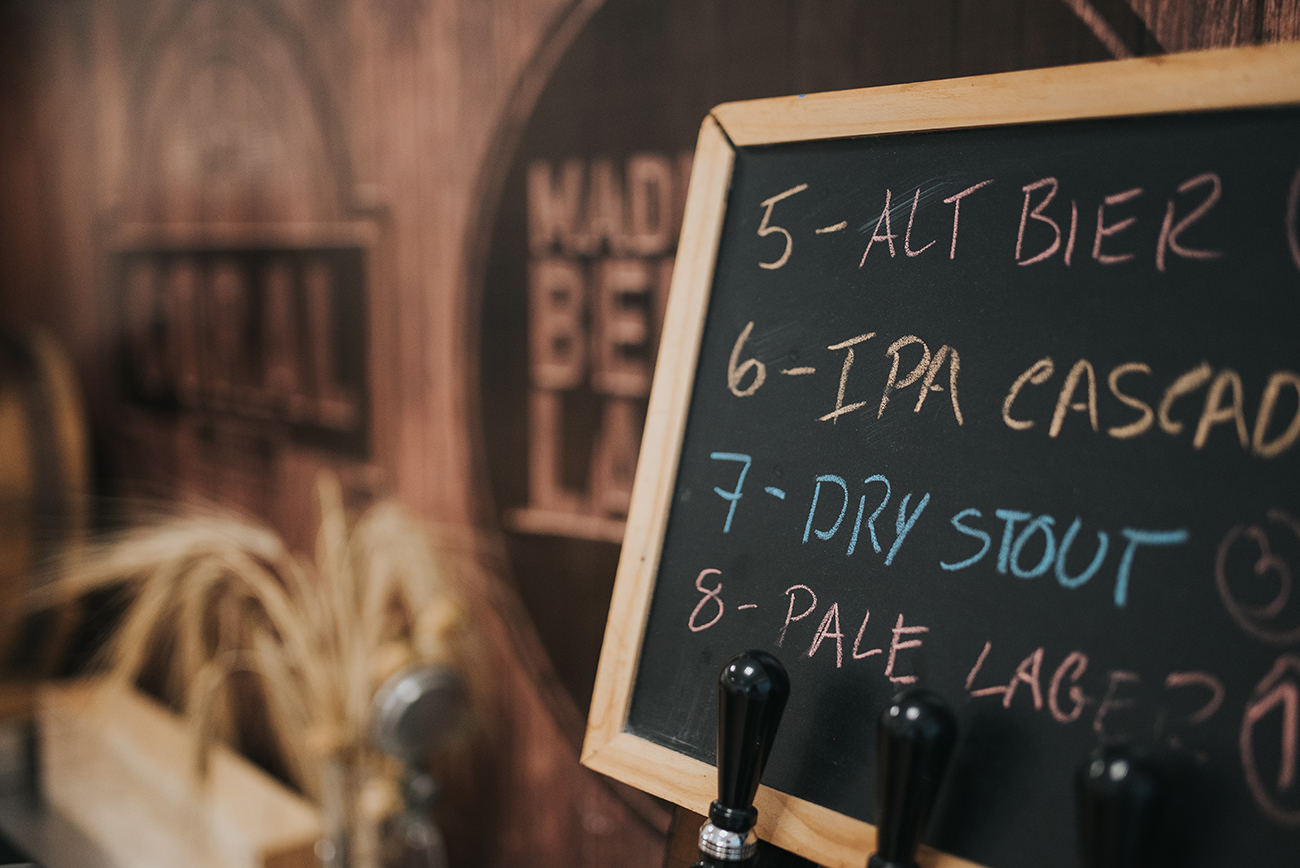 5- ALT BIER
6- IPA CASCAD
7- DRY STOUT 3
8- PALE LAGER 1
WAD
BE
LA